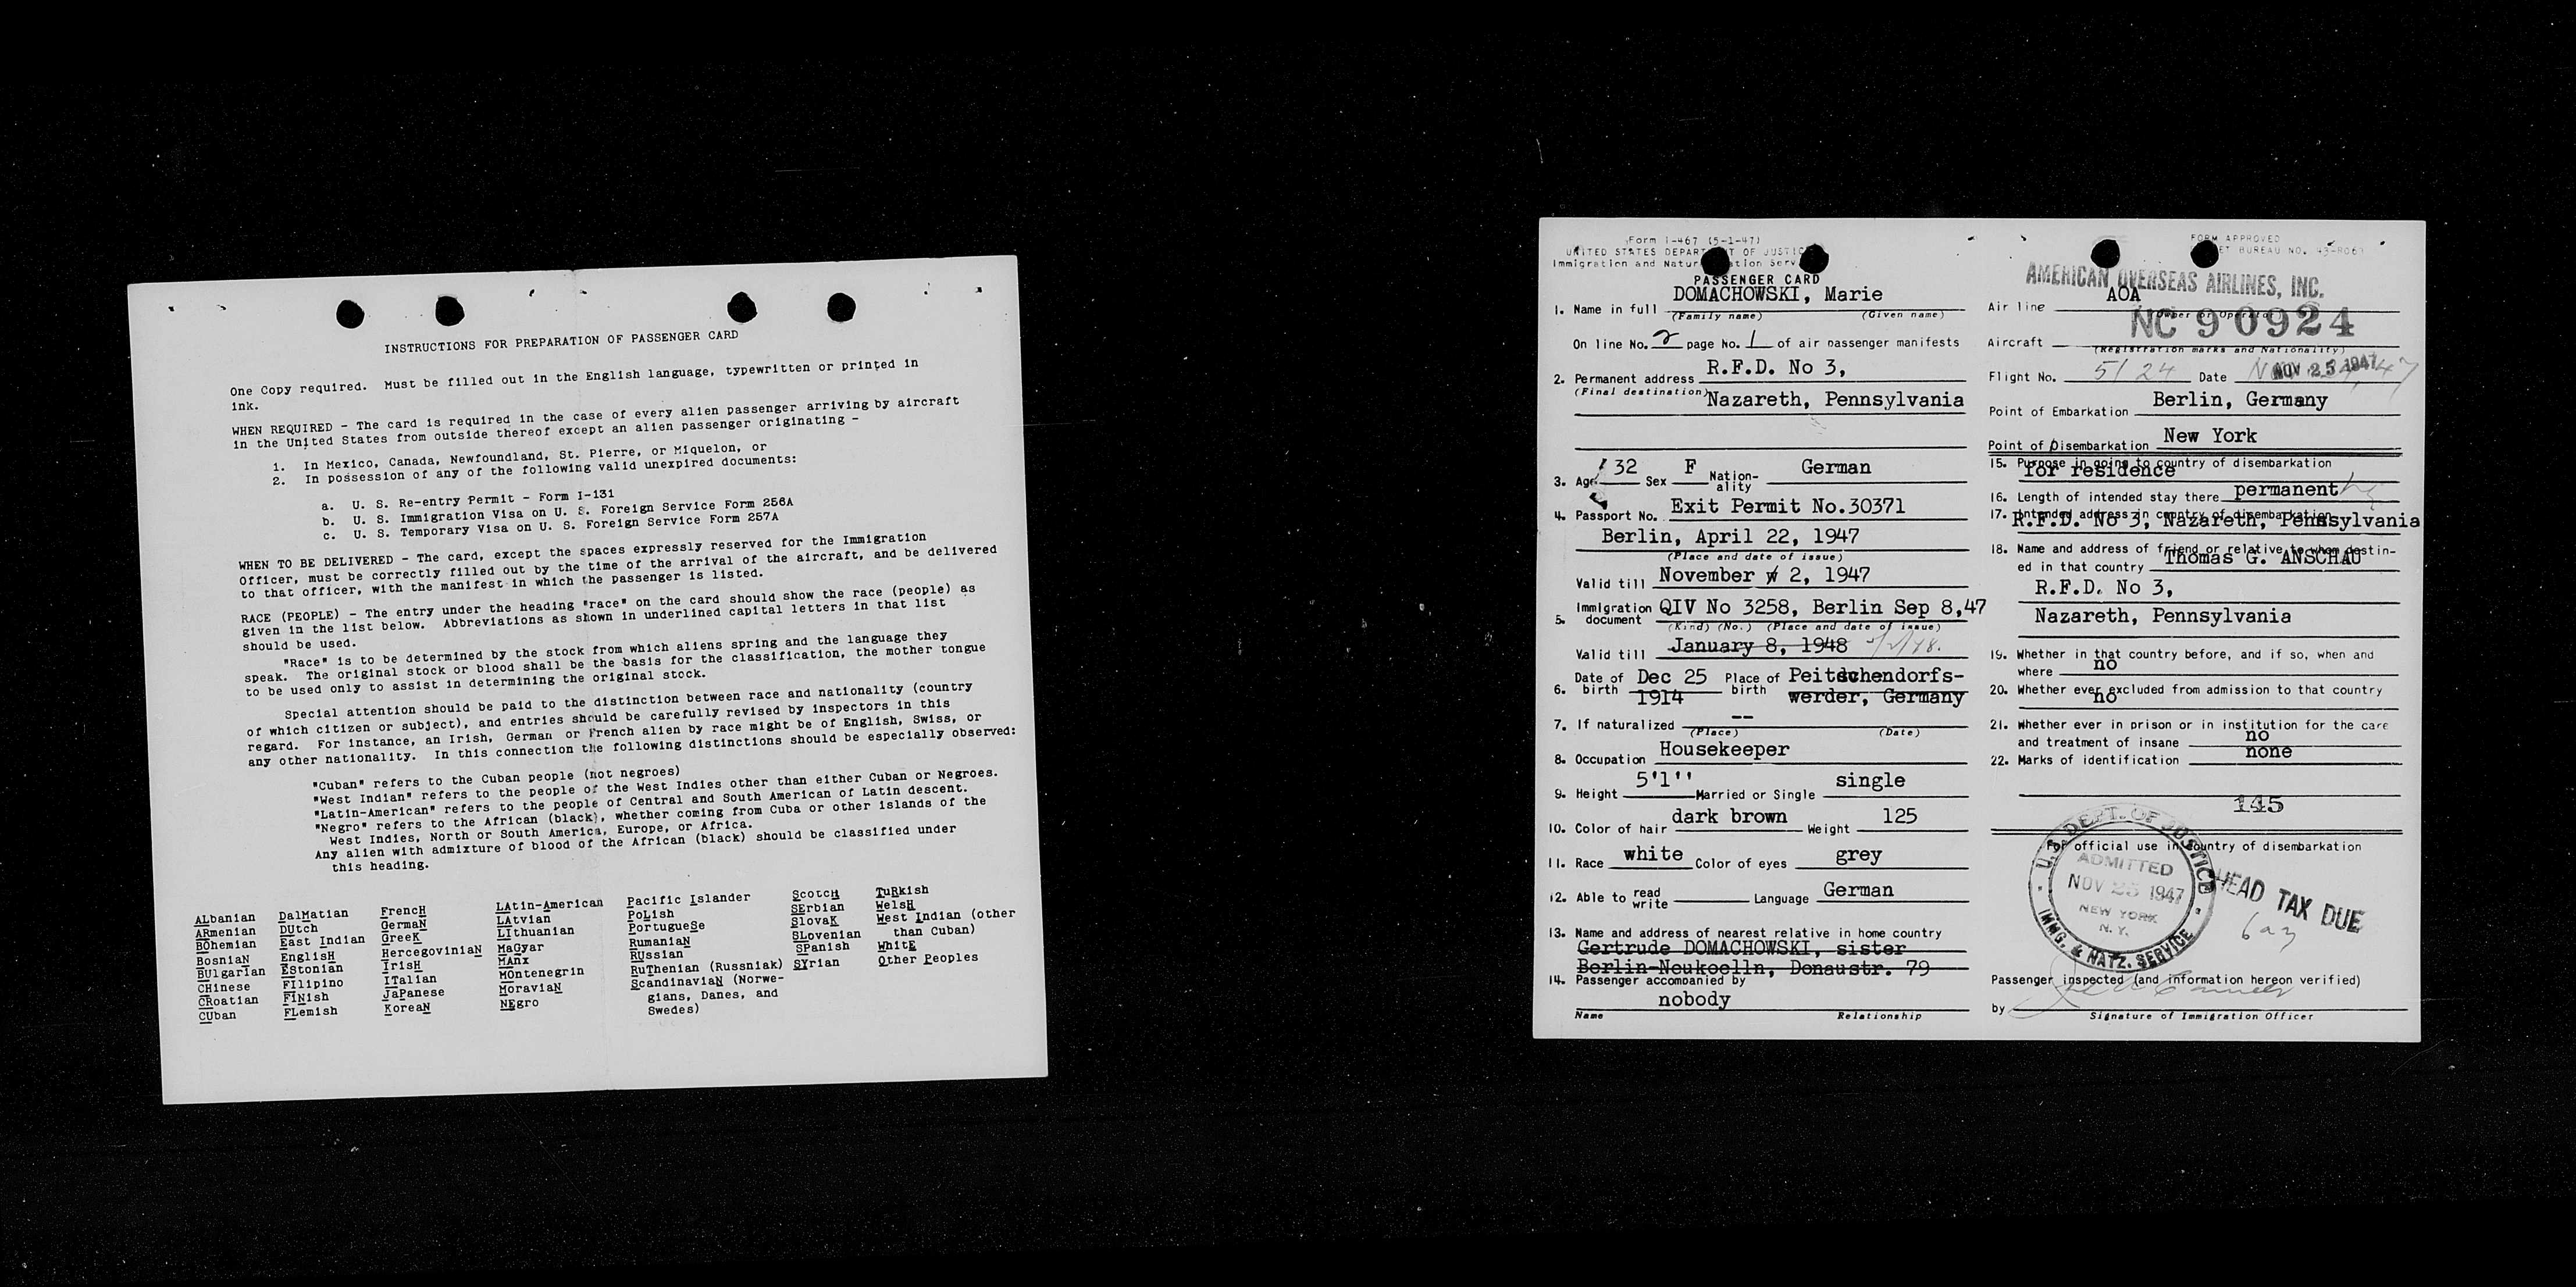 INSTRUCTIONS FOR PREPARATION OF PASSENGER CARD
One Copy required. Must be filled out in the English language, typewritten or printed in
ink.
WHEN REQUIRED - The card is required in the case of every alien passenger arriving by aircraft
in the United States from outside thereof except an alien passenger originating -
1. In Mexico, Canada, Newfoundland, St. Pierre, or Miquelon, or
2. In possession of any of the following valid unexpired documents:
a. U. S. Re-entry Permit - Form I-131
b. U. S. Immigration Visa on U. S. Foreign Service Form 256A
c. U. S. Temporary Visa on U. S. Foreign Service Form 257A
WHEN TO BE DELIVERED - The card, except the spaces expressly reserved for the Immigration
Officer, must be correctly filled out by the time of the arrival of the aircraft, and be delivered
to that officer, with the manifest in which the passenger is listed.
RACE (PEOPLE) - The entry under the heading "race" on the card should show the race (people) as
given in the list below. Abbreviations as shown in underlined capital letters in that list
should be used.
"Race" is to be determined by the stock from which aliens spring and the language they
speak. The original stock or blood shall be the basis for the classification, the mother tongue
to be used only to assist in determining the original stock.
Special attention should be paid to the distinction between race and nationality (country
of which citizen or subject), and entries should be carefully revised by inspectors in this
regard. For instance, an Irish, German or French alien by race might be of English, Swiss, or
any other nationality. In this connection the following distinctions should be especially observed:
"Cuban" refers to the Cuban people (not negroes)
"West Indian" refers to the people of the West Indies other than either Cuban or Negroes.
"Latin-American" refers to the people of Central and South American of Latin descent.
"Negro" refers to the African (black), whether coming from Cuba or other islands of the
West Indies, North or South America, Europe, or Africa.
Any alien with admixture of blood of the African (black) should be classified under
this heading.
ALbanian
ARmenian
BOhemian
BosniaN
BUlgarIan
CHinese
CRoatian
CUban
DalMatian
DUtch
East Indian
EnglisH
EStonian
FIlipino
FINish
FLemish
FrencH
GermaN
GreeK
HercegoviniaN
IrisH
ITalian
JaPanese
KoreaN
LAtin-American
LAtvian
LIthuanian
MaGyar
MAnx
MOntenegrin
MoraviaN
NEgro
Pacific Islander
PoLish
PortugueSe
RumaniaN
RUssian
RuThenian (Russniak)
ScandinaviaN (Norwe-
gians, Danes, and
Swedes)
ScotcH
SErbian
SlovaK
SLovenian
SPanish
SYrian
TuRkish
WelsH
West Indian (other
than Cuban)
WhitE
Other Peoples
Form I-467 (5-1-47)
UNITED STATES DEPART T OF JUSTIC
Immigration and Natur ation Serv
PASSENGER CARD
1. Name in full DOMACHOWSKI, Marie
(Family name) (Given name)
On line No. 2 page No. 1 of air passenger manifests
2. Permanent address R.F.D. No 3,
(Final destination) Nazareth, Pennsylvania
3. Age 32 Sex F Nation-ality German
4. Passport No. Exit Permit No.30371
Berlin, April 22, 1947
(Place and date of issue)
Valid till November 2, 1947
5. Immigration document QIV No 3258, Berlin Sep 8,47
(Kind) (No.) (Place and date of issue)
Valid till January 8, 1948
6. Date of birth Dec 25 1914 Place of birth Peitschendorfs-
werder, Germany
7. If naturalized --
(Place) (Date)
8. Occupation Housekeeper
9. Height 5'1'' Married or Single single
10. Color of hair dark brown Weight 125
11. Race white Color of eyes grey
12. Able to read write Language German
13. Name and address of nearest relative in home country
Gertrude DOMACHOWSKI, sister
Berlin-Neukoelln, Donaustr. 79
14. Passenger accompanied by
nobody
Name Relationship
FORM APPROVED
ET BUREAU NO. 43-R063
AMERICAN OVERSEAS AIRLINES, INC.
Air line AOA
(Owner or Operator)
Aircraft NC 90924
(Registration marks and Nationality)
Flight No. 5/24 Date NOV 25 1947
Point of Embarkation Berlin, Germany
Point of Disembarkation New York
15. Purpose in going to country of disembarkation
for residence
16. Length of intended stay there permanent
17. Intended address in country of disembarkation
R.F.D. No 3, Nazareth, Pennsylvania
18. Name and address of friend or relative to whom destin-
ed in that country Thomas G. ANSCHAU
R.F.D. No 3,
Nazareth, Pennsylvania
19. Whether in that country before, and if so, when and
where no
20. Whether ever excluded from admission to that country
no
21. Whether ever in prison or in institution for the care
and treatment of insane no
22. Marks of identification none
145
For official use in country of disembarkation
U.S. DEPT. OF JUSTICE
ADMITTED
NOV 25 1947
NEW YORK
N.Y.
IMMG. & NATZ. SERVICE
HEAD TAX DUE
Passenger inspected (and information hereon verified)
by
Signature of Immigration Officer